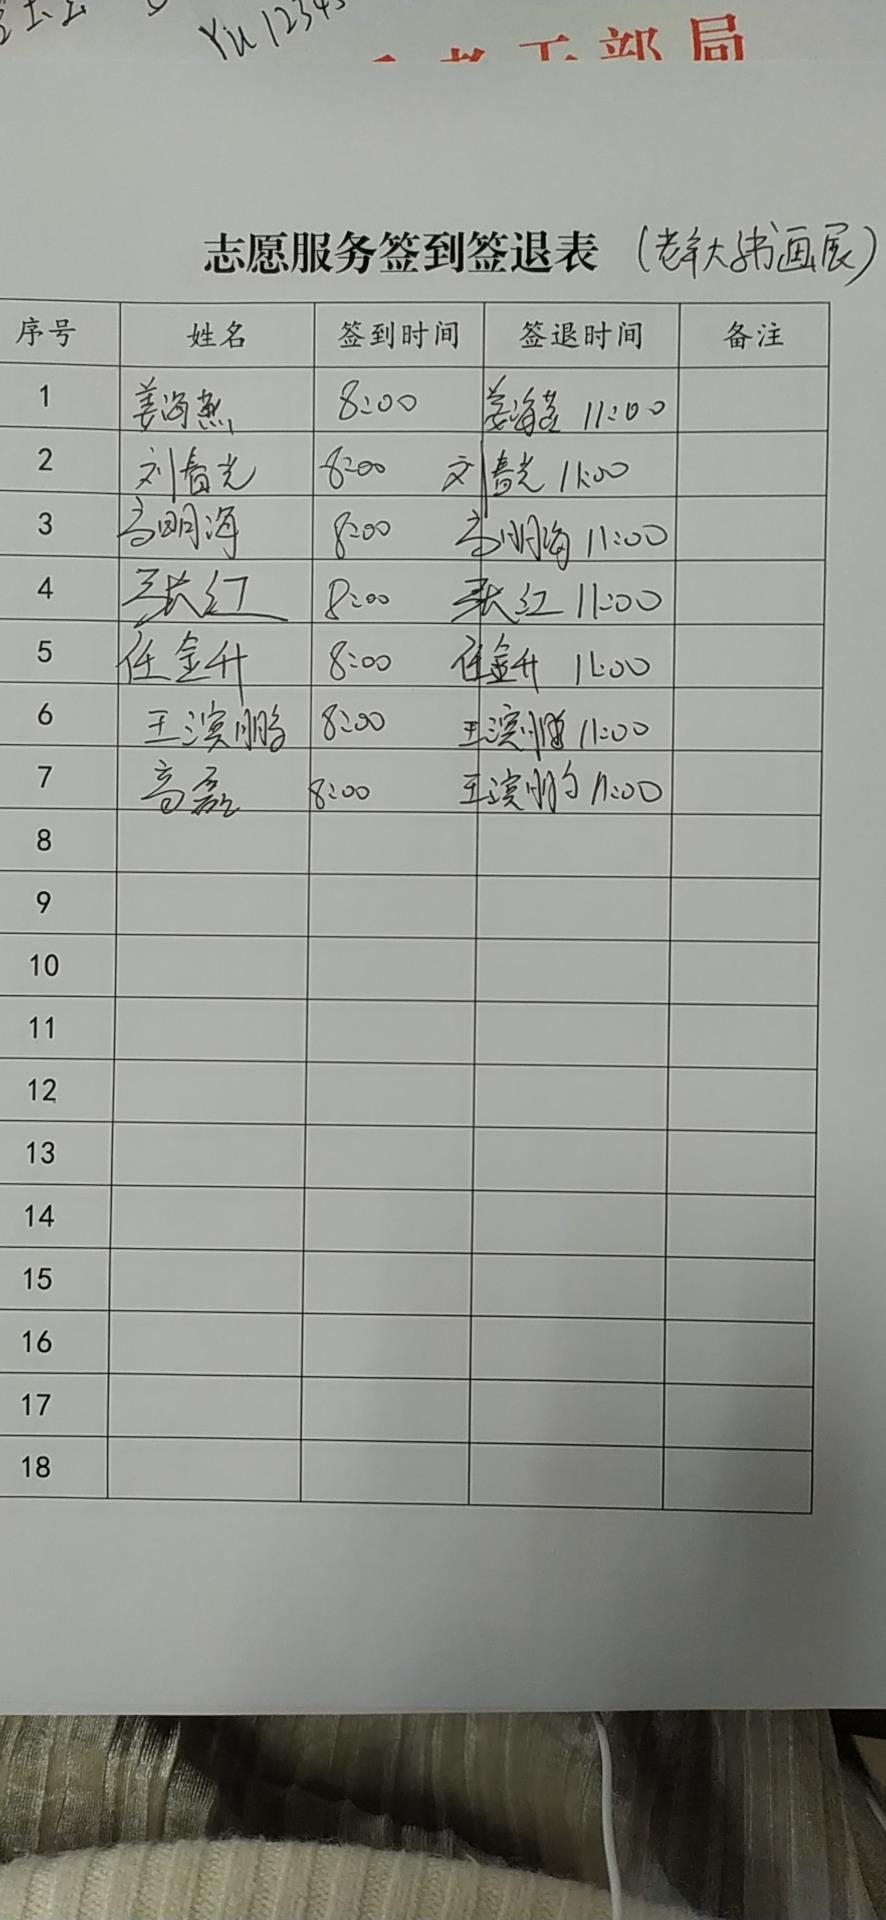 Yiu 12345
老干部局
志愿服务签到签退表 (老年大书画展)
序号 姓名 签到时间 签退时间 备注
1 姜海燕 8:00 姜海燕 11:00
2 刘春光 8:00 刘春光 11:00
3 高明海 8:00 高明海 11:00
4 张红 8:00 张红 11:00
5 任金升 8:00 任金升 11:00
6 王滨鹏 8:00 王滨鹏 11:00
7 高磊 8:00 王滨鹏 11:00
8
9
10
11
12
13
14
15
16
17
18